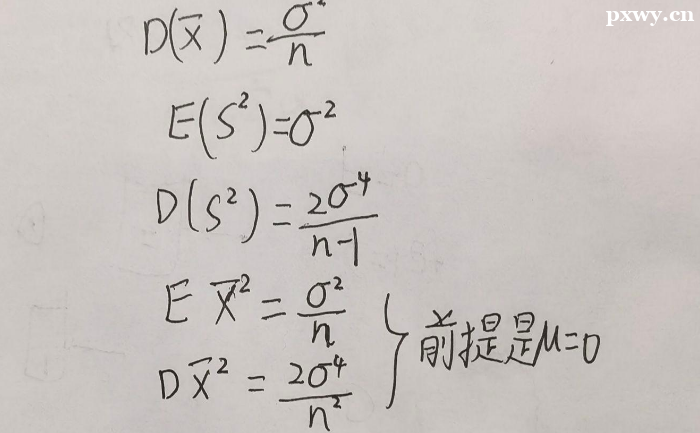 pxwy.cn
D(X̄) = σ²/n
E(S²)=σ²
D(S²) = 2σ⁴/(n-1)
E X̄² = σ²/n
D X̄² = 2σ⁴/n²
} 前提是μ=0